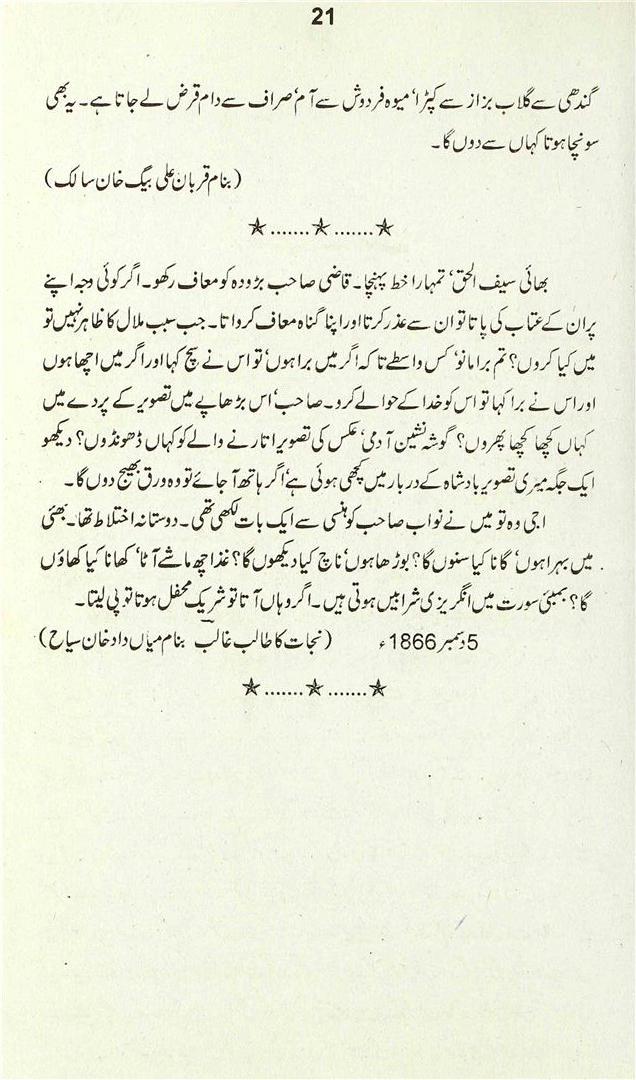 21
گندھی سے گلاب بزاز سے کپڑا‘ میوہ فروش سے آم‘ صراف سے دام قرض لے جاتا ہے۔ یہ بھی
سونچا ہوتا کہاں سے دوں گا۔
(بنام قربان علی بیگ خان سالک)
★.......★.......★
بھائی سیف الحق‘ تمہارا خط پہنچا۔ قاضی صاحب بڑودہ کو معاف رکھو۔ اگر کوئی وجہ اپنے
پر ان کے عتاب کی پاتا تو ان سے عذر کرتا اور اپنا گناہ معاف کرواتا۔ جب سبب ملال کا ظاہر نہیں تو
میں کیا کروں؟ تم برا مانو‘ کس واسطے تاکہ اگر میں برا ہوں‘ تو اس نے سچ کہا اور اگر میں اچھا ہوں
اور اس نے برا کہا تو اس کو خدا کے حوالے کرو۔ صاحب‘ اس بڑھاپے میں تصویر کے پردے میں
کہاں کھچا کھچا پھروں؟ گوشہ نشین آدمی‘ عکس کی تصویر اتارنے والے کو کہاں ڈھونڈوں؟ دیکھو
ایک جگہ میری تصویر بادشاہ کے دربار میں کھچی ہوئی ہے‘ اگر ہاتھ آ جائے تو وہ ورق بھیج دوں گا۔
اجی وہ تو میں نے نواب صاحب کو ہنسی سے ایک بات لکھی تھی۔ دوستانہ اختلاط تھا۔ بھئی
میں بہرا ہوں‘ گانا کیا سنوں گا؟ بوڑھا ہوں‘ ناچ کیا دیکھوں گا؟ غذا چھ ماشے آٹا‘ کھانا کیا کھاؤں
گا؟ بمبئی سورت میں انگریزی شرابیں ہوتی ہیں۔ اگر وہاں آتا تو شریک محفل ہوتا تو پی لیتا۔
5 دسمبر 1866ء (نجات کا طالب غالب بنام میاں داد خان سیاح)
★.......★.......★